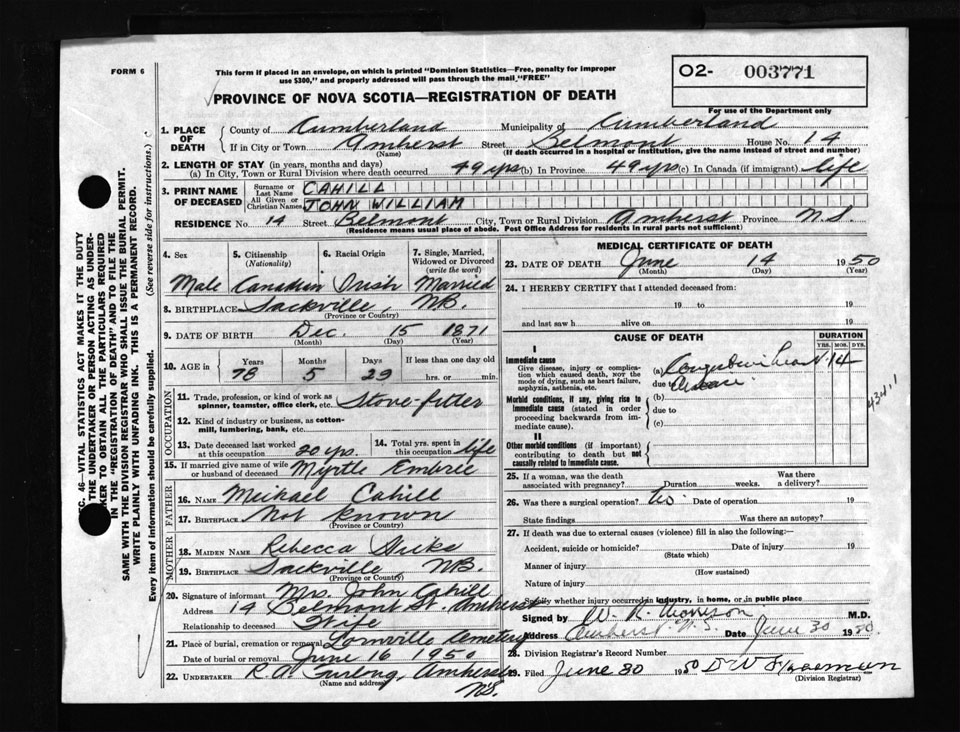 FORM 6
This form if placed in an envelope, on which is printed "Dominion Statistics—Free, penalty for improper
use $300," and properly addressed will pass through the mail, "FREE"
O2- 003771
For use of the Department only
PROVINCE OF NOVA SCOTIA—REGISTRATION OF DEATH
1. PLACE OF DEATH
County of Cumberland Municipality of Cumberland
If in City or Town Amherst Street Belmont House No. 14
(Name) (If death occurred in a hospital or institution, give the name instead of street and number)
2. LENGTH OF STAY (in years, months and days)
(a) In City, Town or Rural Division where death occurred 49 yrs (b) In Province 49 yrs (c) In Canada (if immigrant) life
3. PRINT NAME OF DECEASED
Surname or Last Name CAHILL
All Given or Christian Names JOHN WILLIAM
RESIDENCE No. 14 Street Belmont City, Town or Rural Division Amherst Province N.S.
(Residence means usual place of abode. Post Office Address for residents in rural parts not sufficient)
4. Sex 5. Citizenship (Nationality) 6. Racial Origin 7. Single, Married, Widowed or Divorced (write the word)
Male Canadian Irish Married
8. BIRTHPLACE Sackville N.B.
(Province or Country)
9. DATE OF BIRTH Dec. 15 1871
(Month) (Day) (Year)
10. AGE in Years Months Days If less than one day old
78 5 29 hrs. or min.
OCCUPATION
11. Trade, profession, or kind of work as spinner, teamster, office clerk, etc. Stove-fitter
12. Kind of industry or business, as cotton-mill, lumbering, bank, etc.
13. Date deceased last worked at this occupation 20 yrs. 14. Total yrs. spent in this occupation life
15. If married give name of wife or husband of deceased Myrtle Embree
FATHER
16. NAME Michael Cahill
17. BIRTHPLACE Not known
(Province or Country)
MOTHER
18. MAIDEN NAME Rebecca Hicks
19. BIRTHPLACE Sackville, N.B.
(Province or Country)
20. Signature of informant Mrs. John Cahill
Address 14 Belmont St. Amherst
Relationship to deceased Wife
21. Place of burial, cremation or removal Cemetery
Date of burial or removal June 16 1950
22. UNDERTAKER R.A. Furlong, Amherst
(Name and address) N.S.
MEDICAL CERTIFICATE OF DEATH
23. DATE OF DEATH June 14 1950
(Month) (Day) (Year)
24. I HEREBY CERTIFY that I attended deceased from:
19 to 19
and last saw h alive on 19
CAUSE OF DEATH DURATION
YRS. MOS. DYS.
I
Immediate cause
Give disease, injury or complication which caused death, not the mode of dying, such as heart failure, asphyxia, asthenia, etc.
(a) heart 14
due to disease
Morbid conditions, if any, giving rise to immediate cause (stated in order proceeding backwards from immediate cause).
(b)
due to
(c)
II
Other morbid conditions (if important) contributing to death but not causally related to immediate cause.
25. If a woman, was the death associated with pregnancy? Duration weeks. Was there a delivery?
26. Was there a surgical operation? Date of operation 19
State findings Was there an autopsy?
27. If death was due to external causes (violence) fill in also the following:—
Accident, suicide or homicide? Date of injury 19
(State which)
Manner of injury
(How sustained)
Nature of injury
Specify whether injury occurred in industry, in home, or in public place
Signed by W. R. Morrison M.D.
Address Amherst N.S. Date June 30 1950.
28. Division Registrar's Record Number
29. Filed June 30 1950
(Division Registrar)
SEC. 46—VITAL STATISTICS ACT MAKES IT THE DUTY
OF THE UNDERTAKER OR PERSON ACTING AS UNDER-
TAKER TO OBTAIN ALL THE PARTICULARS REQUIRED
IN THE "REGISTRATION OF DEATH" AND TO FILE THE
SAME WITH THE DIVISION REGISTRAR WHO SHALL ISSUE THE BURIAL PERMIT.
WRITE PLAINLY WITH UNFADING INK. THIS IS A PERMANENT RECORD.
Every item of information should be carefully supplied. (See reverse side for instructions.)